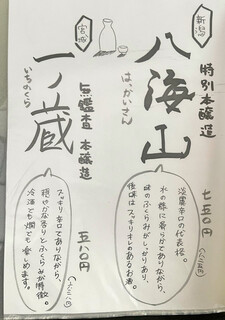 新潟
特別本醸造
八海山
はっかいさん
七五〇円
淡麗辛口の代表格。
水の様に滑らかでありながら、
味のふくらみがしっかりあり、
後味はスッキリキレのあるお酒。
宮城
無鑑査 本醸造
一ノ蔵
いちのくら
五八〇円
スッキリ辛口でありながら、
穏やかな香りとふくらみが特徴。
冷酒でも燗でも愉しめます。